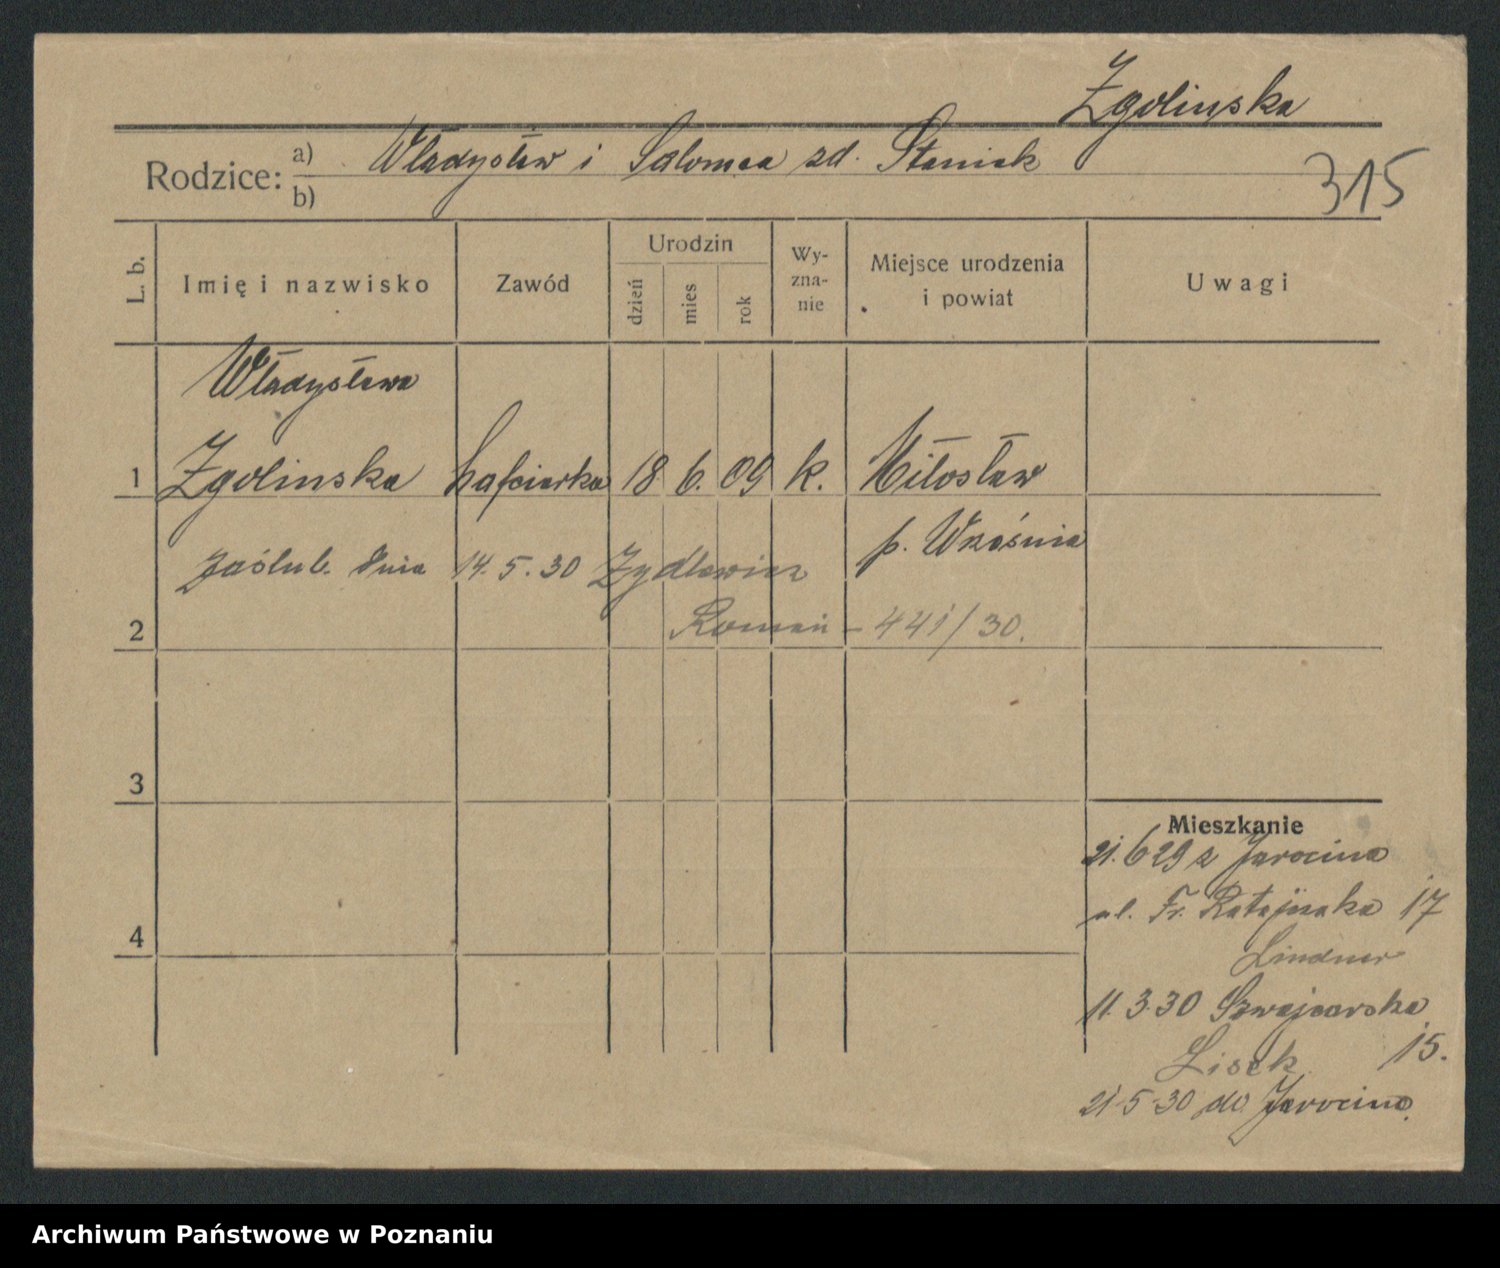 Zgolinska
Rodzice: a) Władysław i Salomea zd. Staniak
b)
315
L. b.
Imię i nazwisko
Zawód
Urodzin
dzień
mies
rok
Wy-
zna-
nie
Miejsce urodzenia
i powiat
Uwagi
Władysława
1 Zgolinska hafciarka 18 6. 09 k. Miłosław
p. Września
zaślub. dnia 14.5.30 Zydlewicz
2 Roman - 441/30.
3
4
Mieszkanie
21.6 29 z Jarocina
ul. Fr. Ratajczaka 17
Lindner
11.3.30 Szwajcarska
15.
Lisek
21-5-30 do Jarocina.
Archiwum Państwowe w Poznaniu